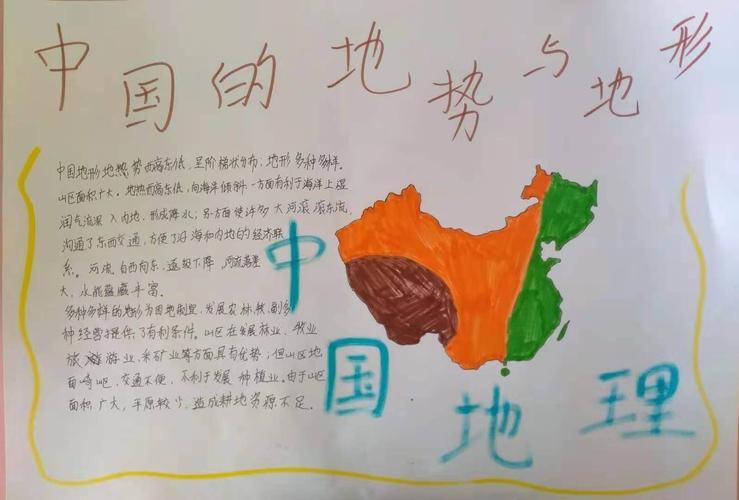 中国的地势与地形
中国地形地势西高东低，呈阶梯状分布；地形多种多样。
山区面积广大。地势西高东低，向海洋倾斜一方面有利于海洋上湿
润气流深入内地，形成降水；另一方面使许多大河滚滚东流，
沟通了东西交通，方便了沿海和内地的经济联
系。河流自西向东，逐级下降，河流落差
大，水能蕴藏丰富。
多种多样的地形为因地制宜，发展农林牧副多
种经营提供了有利条件。山区在发展林业、牧业
旅游业，采矿业等方面具有优势；但山区地
面崎岖，交通不便，不利于发展种植业。由于山区
面积广大，平原较少，造成耕地资源不足。
中国地理